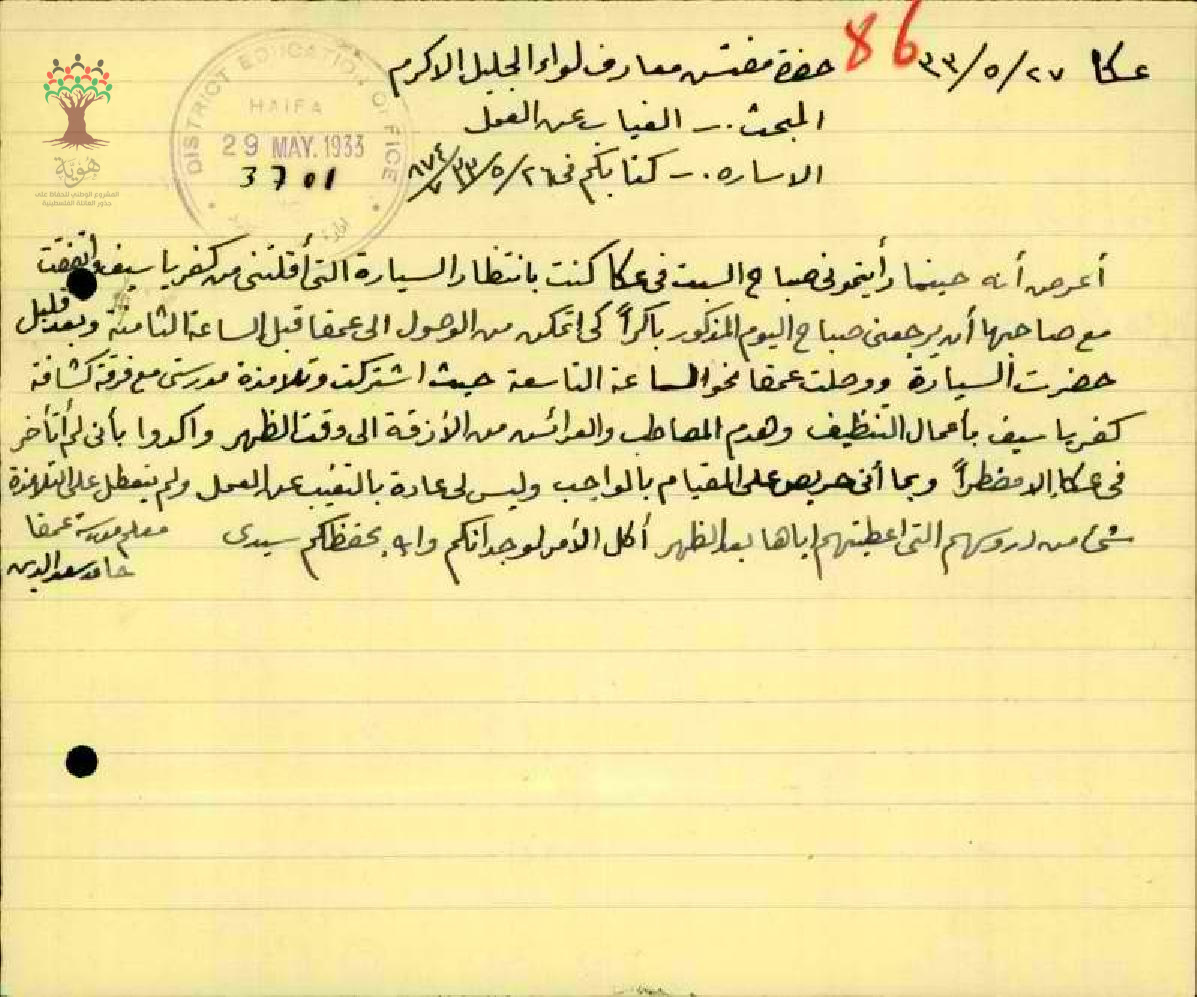 86
عكا ٢٧/٥/٣٣
حضرة مفتش معارف لواء الجليل الاكرم
المبحث .- الغياب عن العمل
الاشاره .- كتابكم في ٢٦/٥/٣٣
DISTRICT EDUCATION OFFICE
HAIFA
29 MAY. 1933
3701
هُوِيَّة
المشروع الوطني للحفاظ على
جذور العائلة الفلسطينية
أعرض أنه حينما رأيتموني صباح السبت في عكا كنت بانتظار السيارة التي أقلتني من كفرياسيف واتفقت
مع صاحبها أن يرجعني صباح اليوم المذكور باكراً كي اتمكن من الوصول الى عمقا قبل الساعة الثامنة وبعد قليل
حضرت السيارة ووصلت عمقا نحو الساعة التاسعة حيث اشتركت وتلامذة مدرستي مع فرقة كشافة
كفرياسيف بأعمال التنظيف وهدم المصاطب والعرائش من الأزقة الى وقت الظهر واكدوا بأني لم أتأخر
في عكا إلا مضطراً وبما أني حريص على القيام بالواجب وليس لي عادة بالتغيب عن العمل ولم يتعطل على التلامذة
شئ من دروسهم التي اعطيتهم اياها بعد الظهر أكل الأمر لوجدانكم والله يحفظكم سيدي
معلم مدرسة عمقا
حامد سعد الدين